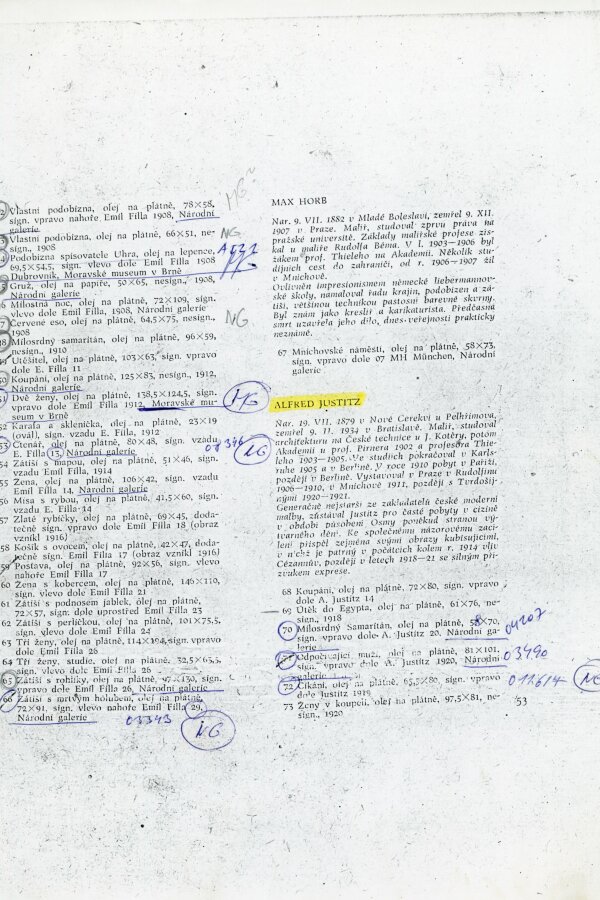 Vlastní podobizna, olej na plátně, 78×58,
sign. vpravo nahoře Emil Filla 1908, Národní
galerie
Vlastní podobizna, olej na plátně, 66×51, ne-
sign., 1908
Podobizna spisovatele Uhra, olej na lepence,
69,5×54,5, sign. vlevo dole Emil Filla 1908
Dubrovnik, Moravské museum v Brně
Gruž, olej na papíře, 50×65, nesign., 1908,
Národní galerie
Milostná noc, olej na plátně, 72×109, sign.
vlevo dole Emil Filla, 1908, Národní galerie
Červené eso, olej na plátně, 64,5×75, nesign.,
1908
Milosrdný samaritán, olej na plátně, 96×59,
nesign., 1910
Utěšitel, olej na plátně, 103×63, sign. vpravo
dole E. Filla 11
Koupání, olej na plátně, 125×83, nesign., 1912,
Národní galerie
Dvě ženy, olej na plátně, 138,5×124,5, sign.
vpravo dole Emil Filla 1912, Moravské mu-
seum v Brně
52 Karafa a sklenička, olej na plátně, 23×19
(ovál), sign. vzadu E. Filla, 1912
53 Čtenář, olej na plátně, 80×48, sign. vzadu
E. Filla 13, Národní galerie
54 Zátiší s mapou, olej na plátně, 51×46, sign.
vzadu Emil Filla, 1914
55 Žena, olej na plátně, 106×42, sign. vzadu
Emil Filla 14, Národní galerie
56 Mísa s rybou, olej na plátně, 41,5×60, sign.
vzadu E. Filla 14
57 Zlaté rybičky, olej na plátně, 69×45, doda-
tečně sign. vpravo dole Emil Filla 18 (obraz
vznikl 1916)
58 Košík s ovocem, olej na plátně, 42×47, doda-
tečně sign. Emil Filla 17 (obraz vznikl 1916)
59 Postava, olej na plátně, 92×56, sign. vlevo
nahoře Emil Filla 17
60 Žena s kobercem, olej na plátně, 146×110,
sign. vlevo dole Emil Filla 21
61 Zátiší s podnosem jablek, olej na plátně,
72×57, sign. dole uprostřed Emil Filla 23
62 Zátiší s perličkou, olej na plátně, 101×75,5,
sign. vlevo dole Emil Filla 24
63 Tři ženy, olej na plátně, 114×194, sign. vpravo
dole Emil Filla 26
64 Tři ženy, studie, olej na plátně, 32,5×63,5,
sign. vlevo dole Emil Filla 26
65 Zátiší s rohlíky, olej na plátně, 97×130, sign.
vpravo dole Emil Filla 26, Národní galerie
66 Zátiší s mrtvým holubem, olej na plátně,
72×91, sign. vlevo nahoře Emil Filla 29,
Národní galerie
03343
NG
NG
NG
MG
NG
MAX HORB
Nar. 9. VII. 1882 v Mladé Boleslavi, zemřel 9. XII.
1907 v Praze. Malíř, studoval zprvu práva na
pražské universitě. Základy malířské profese zís-
kal u malíře Rudolfa Béma. V l. 1903–1906 byl
žákem prof. Thieleho na Akademii. Několik stu-
dijních cest do zahraničí, od r. 1906–1907 žil
v Mnichově.
Ovlivněn impresionismem německé liebermannov-
ské školy, namaloval řadu krajin, podobizen a zá-
tiší, většinou technikou pastosní barevné skvrny.
Byl znám jako kreslíř a karikaturista. Předčasná
smrt uzavřela jeho dílo, dnes veřejnosti prakticky
neznámé.
67 Mnichovské náměstí, olej na plátně, 58×73,
sign. vpravo dole 07 MH München, Národní
galerie
ALFRED JUSTITZ
Nar. 19. VII. 1879 v Nové Cerekvi u Pelhřimova,
zemřel 9. II. 1934 v Bratislavě. Malíř, studoval
architekturu na České technice u J. Kotěry, potom
Akademii u prof. Pirnera 1902 a profesora Thie-
leho 1903–1905. Ve studiích pokračoval v Karls-
ruhe 1905 a v Berlíně. V roce 1910 pobyt v Paříži,
později v Berlíně. Vystavoval v Praze v Rudolfinu
1906–1910, v Mnichově 1911, později s Tvrdošíj-
nými 1920–1921.
Generačně nejstarší ze zakladatelů české moderní
malby, zůstával Justitz pro časté pobyty v cizině
v období působení Osmy poněkud stranou vý-
tvarného dění. Ke společnému názorovému zací-
lení přispěl zejména svými obrazy kubisujícími,
v nichž je patrný v počátcích kolem r. 1914 vliv
Cézannův, později v letech 1918–21 se silným pří-
zvukem exprese.
68 Koupání, olej na plátně, 72×80, sign. vpravo
dole A. Justitz 14
69 Útěk do Egypta, olej na plátně, 61×76, ne-
sign., 1918
70 Milosrdný Samaritán, olej na plátně, 58×70,
sign. vpravo dole A. Justitz 20, Národní ga-
lerie
Odpočívající muži, olej na plátně, 81×101,
sign. vpravo dole A. Justitz 1920, Národní
galerie
72 Cikáni, olej na plátně, 65,5×80, sign. vpravo
dole Justitz 1919
73 Ženy v koupeli, olej na plátně, 97,5×81, ne-
sign., 1920
04207
03490
NG
53